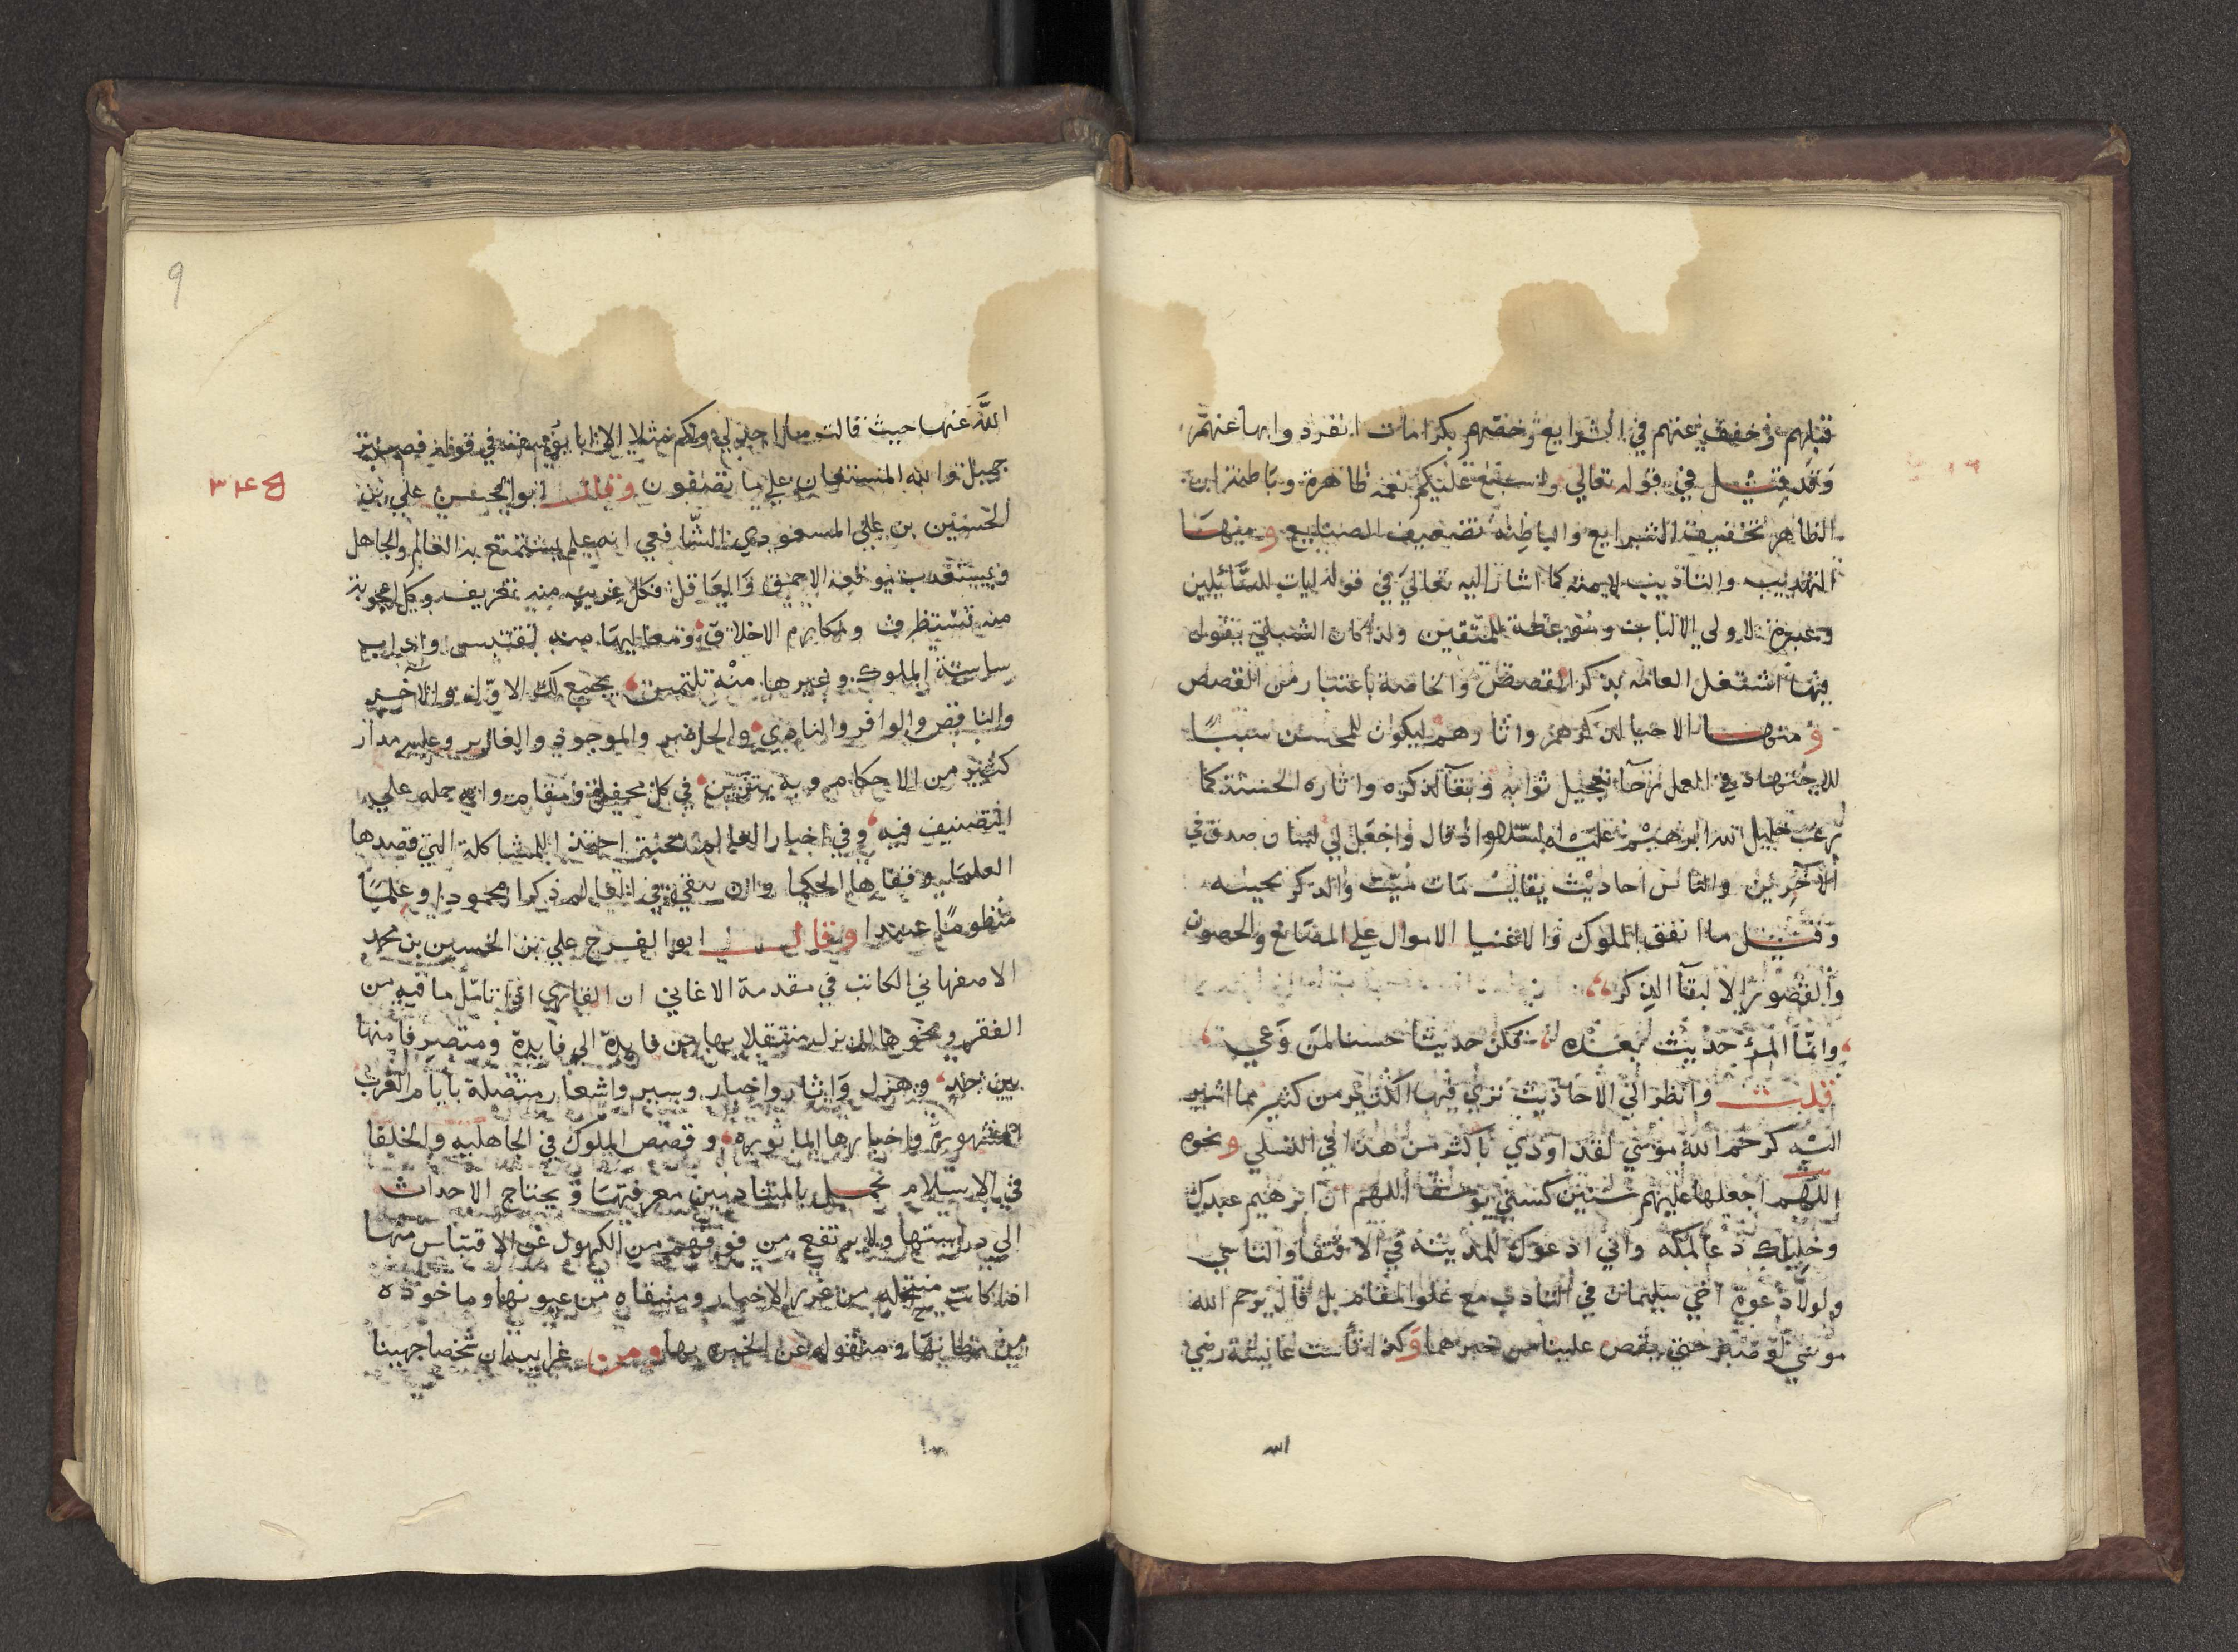 قبلهم وخفف عنهم في الشرايع وخصهم بكرامات انفرد وابها عنهم
وقد قيل في قوله تعالي واسبغ عليكم نعمه ظاهرة وباطنة ان
الظاهر تخفيف الشرايع والباطنه تضعيف الصنايع ومنها
التهذيب والتاديب لامته كما اشار اليه تعالي في قوله ايات للسائلين
وعبرة لاولي الالباب وموعظة للمتقين ولذا كان الشبلي يقول
فيها اشتغل العامه بذكر القصص والخاصة باعتبار من القصص
ومنها الاحيا لذكرهم واثارهم ليكون للمحسن سببا
للاجتهاد في العمل تعجيل ثوابه وبقآ لذكره واثاره الحسنة كما
رغب خليل الله ابرهيم عليه السلام اذ قال واجعل لي لسان صدق في
الآخرين والناس احاديث يقال مات ميت والذكر يحييه
وقيل ما انفق الملوك والاغنيا الاموال علي المصانع والحصون
والقصور الا لبقآ الذكر
وانما المرء حديث بعده فكن حديثا حسنا لمن وعي
قلت وانظر الي الاحاديث تري فيها الكثير من كثير مما اشير
اليه كرحم الله موسي لقد اوذي باكثر من هذا في التسلي ونحوه
اللهم اجعلها عليهم سنين كسني يوسف اللهم ان ابرهيم عبدك
وخليلك دعا لمكه واني ادعوك للمدينة في الاقتفا والتاسي
ولولا دعوة اخي سليمان في التادب مع علو المقام بل قال يرحم الله
موسي لو صبر حتي يقص علينا من خبرهما وكذا تاست عائشة رضي
الله
9
الله عنها حيث قالت ما اجد لي ولكم مثلا الا ابا يوسف في قوله فصبر
جميل والله المستعان علي ما تصفون وقال ابو الحسن علي بن
B ٣٤٣
الحسين بن علي المسعودي الشافعي انه علم يستمتع به العالم والجاهل
ويستعذب موقعه الاحمق والعاقل فكل غريبه منه تعرف وكل اعجوبة
منه تستظرف ومكارم الاخلاق ومعاليها منه تقتبس واداب
سياسة الملوك وغيرها منه تلتمس يجمع لك الاول والاخر
والناقص والوافر والبادي والحاضر والموجود والغابر وعليه مدار
كثير من الاحكام وبه يتزين في كل محفل ومقام وانه حمله علي
التصنيف فيه وفي اخبار العالم محبة احتذا المشاكلة التي قصدها
العلما وقفاها الحكما وان يبقي في العالم ذكرا محمودا وعلما
منظوما عتيدا وقال ابو الفرج علي بن الحسين بن محمد
الاصفهاني الكاتب في مقدمة الاغاني ان القاري اذا تامل ما فيه من
الفقر ونحوها لم يزل متنقلا بها من فايدة الي فايدة ومتصرفا منها
بين جد وهزل واثار واخبار وسير واشعار متصلة بايام العرب
المشهورة واخبارها الماثوره وقصص الملوك في الجاهليه والخلفا
في الاسلام تجمل بالمتادبين معرفتها ويحتاج الاحداث
الي دراستها ولا يرتفع من فوقهم من الكهول عن الاقتباس منها
اذا كانت منتخله من غرر الاخبار ومنتقاه من عيونها وماخوذه
من مظانها ومنقوله عن الخبره بها ومن غرايبه ان شخصا جهينا